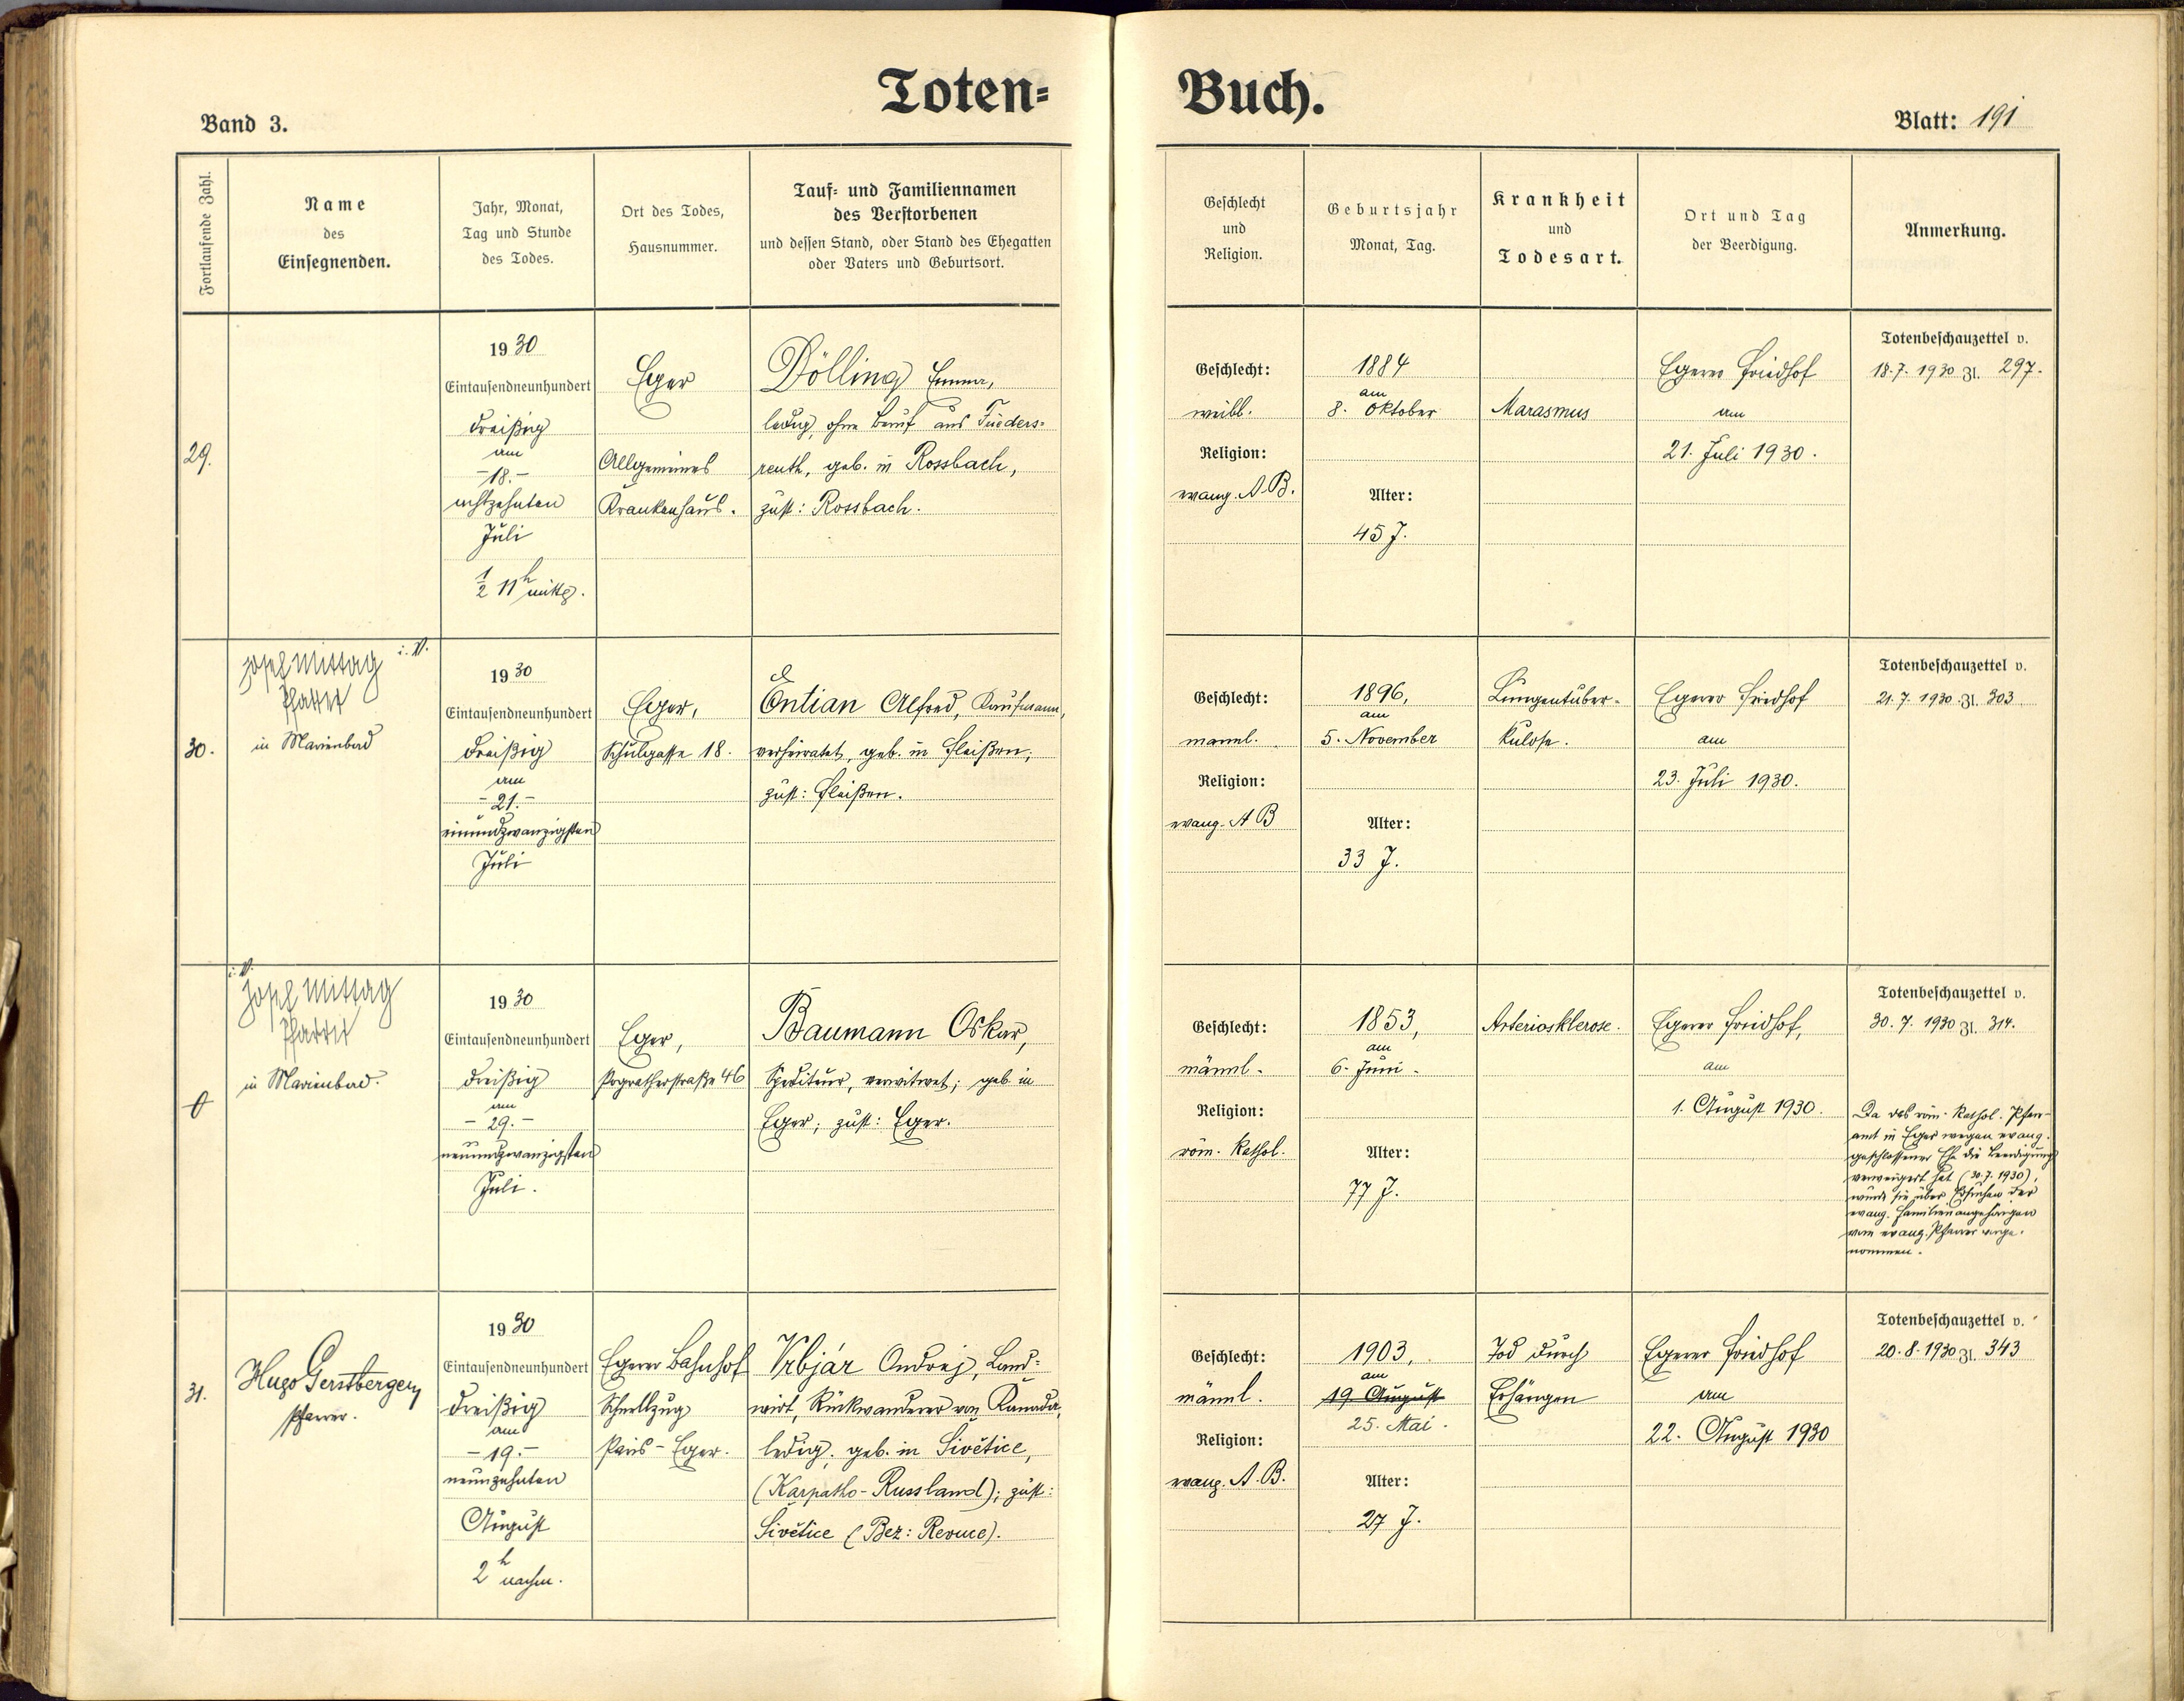 Toten=Buch.
Band 3.
Blatt: 191
Fortlaufende Zahl.
Name
des
Einsegnenden.
Jahr, Monat,
Tag und Stunde
des Todes.
Ort des Todes,
Hausnummer.
Tauf= und Familiennamen
des Verstorbenen
und dessen Stand, oder Stand des Ehegatten
oder Vaters und Geburtsort.
Geschlecht
und
Religion.
Geburtsjahr
Monat, Tag.
Krankheit
und
Todesart.
Ort und Tag
der Beerdigung.
Anmerkung.
29.
1930
Eintausendneunhundert
dreißig
am
-18.-
achtzehnten
Juli
½ 11h
Eger
Allgemeines
Krankenhaus.
Dölling Emma,
ledig, ohne Beruf aus Frieders=
reuth, geb. in Rossbach,
zust: Rossbach.
Geschlecht:
weibl.
Religion:
evang. A.B.
1884
am
8. Oktober
Alter:
45 J.
Marasmus
Egerer Friedhof
am
21. Juli 1930.
Totenbeschauzettel v.
18.7.1930 Zl. 297.
30.
i. V.
Josef Mittag
Pfarrer
in Marienbad
1930
Eintausendneunhundert
dreißig
am
-21.-
einundzwanzigsten
Juli
Eger,
Schulgasse 18.
Entian Alfred, Kaufmann,
verheiratet, geb. in Fleißen;
zust: Fleißen.
Geschlecht:
mannl.
Religion:
evang. A B
1896,
am
5. November
Alter:
33 J.
Lungentuber-
kulose.
Egerer Friedhof
am
23. Juli 1930.
Totenbeschauzettel v.
21.7.1930 Zl. 303
i. V.
Josef Mittag
Pfarrer
in Marienbad.
1930
Eintausendneunhundert
dreißig
am
-29.-
neunundzwanzigsten
Juli.
Eger,
Pogratherstraße 46
Baumann Oskar,
Spediteur, verwitwet; geb. in
Eger; zust: Eger.
Geschlecht:
männl.
Religion:
röm. kathol.
1853,
am
6. Juni.
Alter:
77 J.
Arteriosklerose.
Egerer Friedhof,
am
1. August 1930.
Totenbeschauzettel v.
30.7.1930 Zl. 314.
Da das röm. kathol. Pfarr-
amt in Eger wegen evang.
geschlossener Ehe die Beerdigung
verweigert hat (30.7.1930),
wurde sie über Ersuchen der
evang. Familienangehörigen
vom evang. Pfarrer vorge-
nommen.
31.
Hugo Gerstberger,
Pfarrer.
1930
Eintausendneunhundert
dreißig
am
-19.-
neunzehnten
August
2h nachm.
Egerer Bahnhof
Schnellzug
Paris-Eger.
Vrbjár Ondrej, Land=
wirt, Rückwanderer von Kanada,
ledig, geb. in Sivětice,
(Karpatho-Russland); zust:
Sivětice (Bez: Revuce).
Geschlecht:
männl.
Religion:
evang. A.B.
1903,
am
19. August
25. Mai.
Alter:
27 J.
Tod durch
Erhängen
Egerer Friedhof
am
22. August 1930
Totenbeschauzettel v.
20.8.1930 Zl. 343